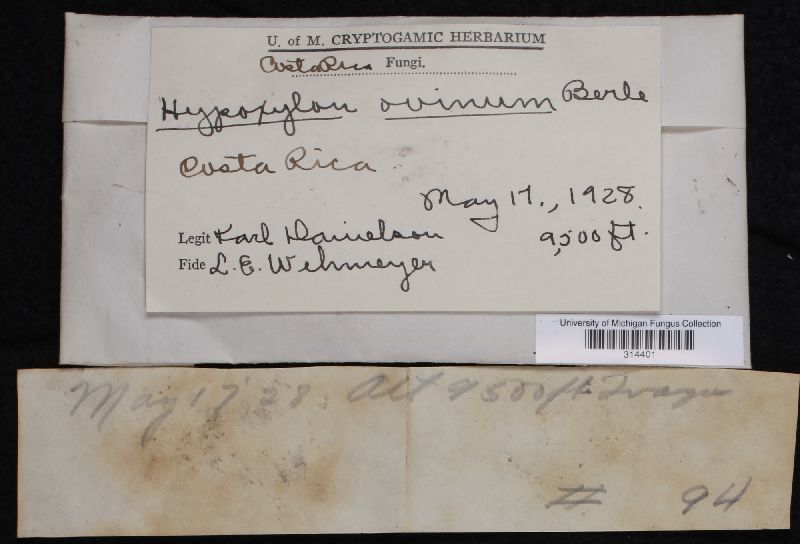 U. of M. CRYPTOGAMIC HERBARIUM
Costa Rica Fungi.
Hypoxylon ovinum Berle
Costa Rica
May 17., 1928.
Legit Karl Danielson 9,500 ft.
Fide L. E. Wehmeyer
University of Michigan Fungus Collection
314401
May 17 '28 Alt 9500 ft
# 94